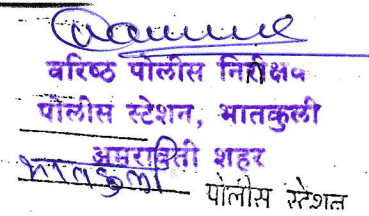 वरिष्ठ पोलीस निरीक्षक
पोलीस स्टेशन, भातकुली
अमरावती शहर
भातकुली पोलीस स्टेशन